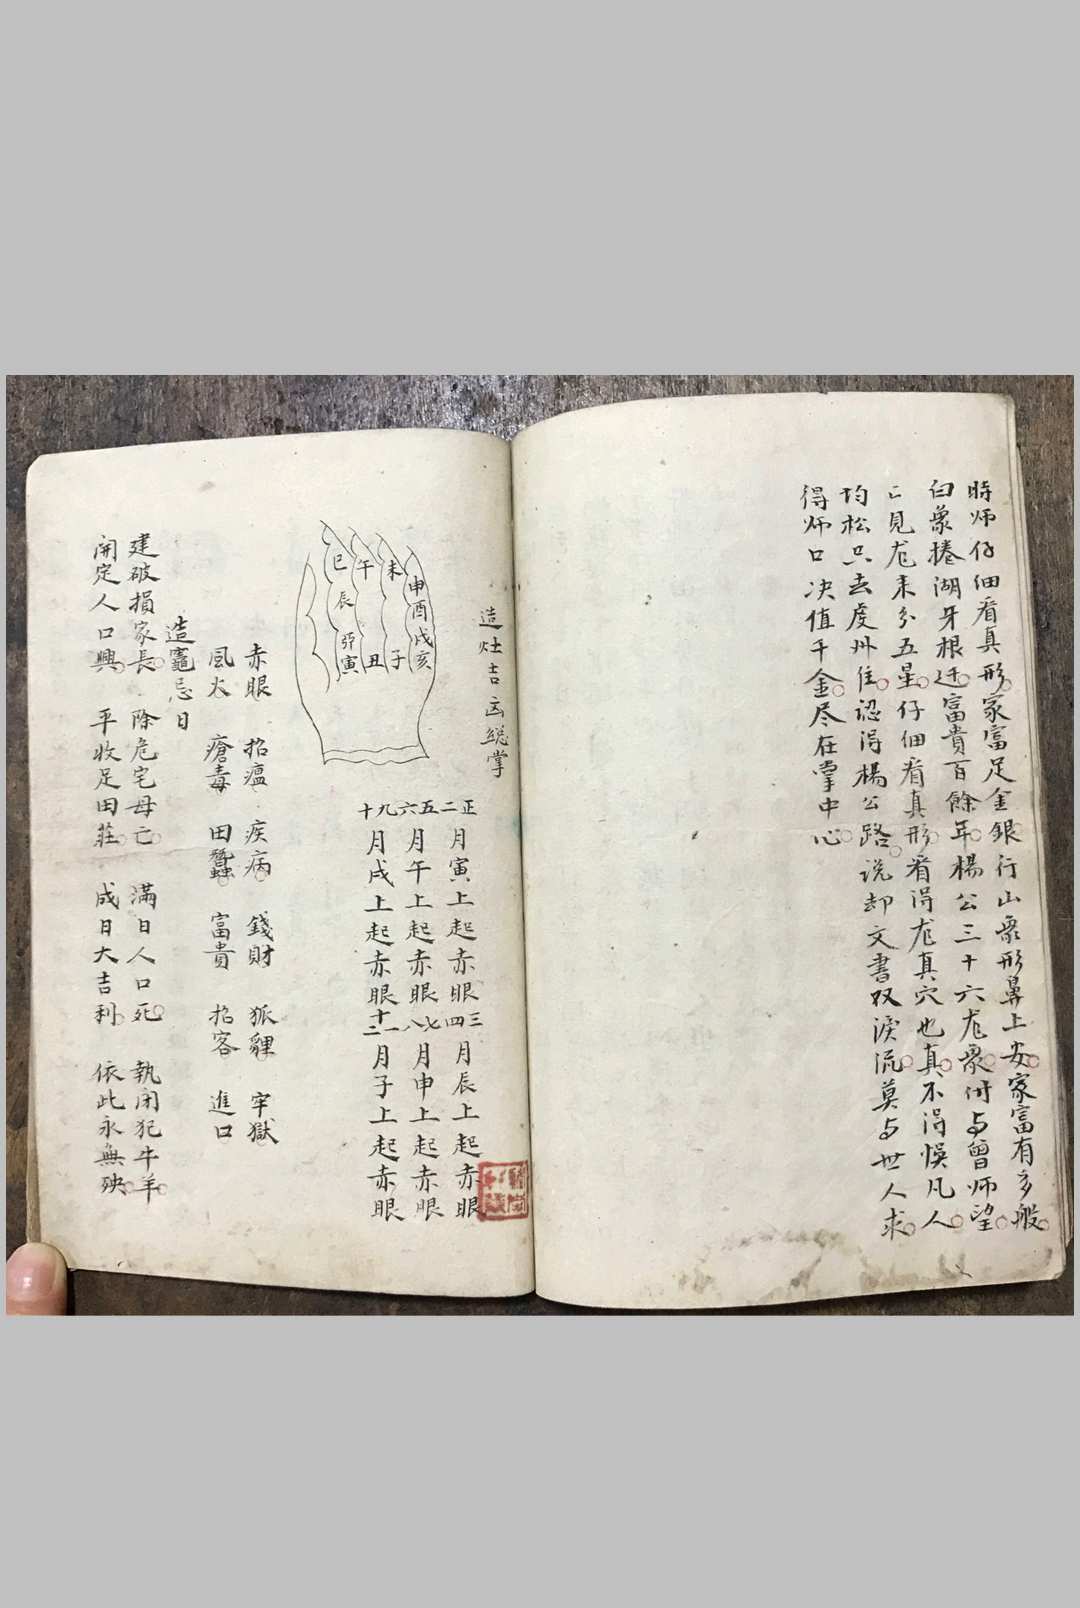 時师仔佃看真形家富足金銀行山象形鼻上安家富有多般
白象捲湖牙根迁富貴百餘年楊公三十六尨衆付与曾师望
亡見尨来分五星仔佃看真形看淂尨真穴也真不淂悮凡人
均松只去虔州住認淂楊公路说却文書双淚流莫与世人求
得师口决值千金尽在掌中心
造灶吉凶總掌
申酉戌亥
未子
午丑
巳辰卯寅
正二月寅上起赤眼三四月辰上起赤眼
五六月午上起赤眼七八月申上起赤眼
九十月戌上起赤眼十一十二月子上起赤眼
赤眼 招瘟 疾病 錢財 狐貍 牢獄
風火 瘡毒 田蠶 富貴 招客 進口
造竈忌日
建破損家長 除危宅母亡 滿日人口死 執闭犯牛羊
開定人口興 平收足田莊 成日大吉利 依此永無殃